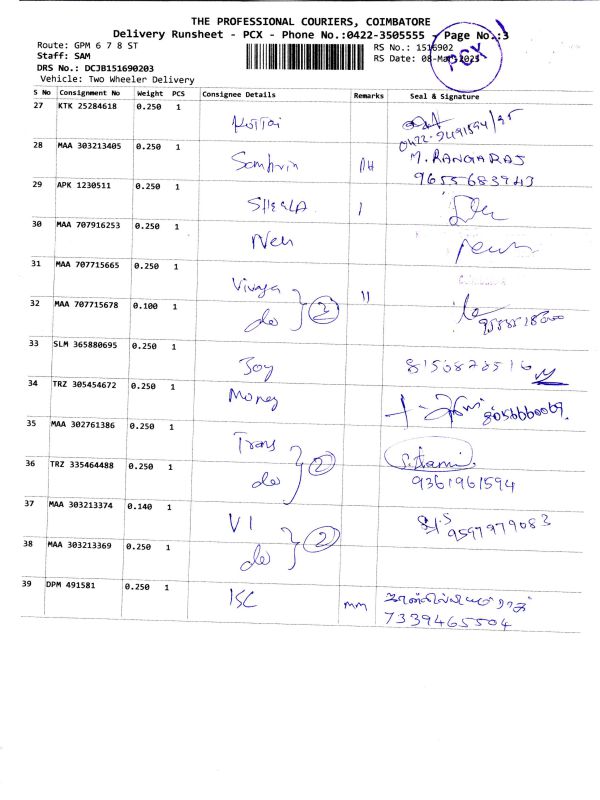 THE PROFESSIONAL COURIERS, COIMBATORE
Delivery Runsheet - PCX - Phone No.:0422-3505555 - Page No.:3
Route: GPM 6 7 8 ST
RS No.: 1516902
Staff: SAM
RS Date: 08-Mar-2025
PCX
DRS No.: DCJB151690203
Vehicle: Two Wheeler Delivery
S No Consignment No Weight PCS Consignee Details Remarks Seal & Signature
27 KTK 25284618 0.250 1
28 MAA 303213405 0.250 1 M. RANGARAJ
9655683943
29 APK 1230511 0.250 1 SHEELA
30 MAA 707916253 0.250 1
31 MAA 707715665 0.250 1 Vinaya
32 MAA 707715678 0.100 1 do 2
33 SLM 365880695 0.250 1 Joy
34 TRZ 305454672 0.250 1 Money 8056660069.
35 MAA 302761386 0.250 1 Trans
36 TRZ 335464488 0.250 1 do 2
9361961594
37 MAA 303213374 0.140 1 VI 9597979083
38 MAA 303213369 0.250 1 do 2
39 DPM 491581 0.250 1 ISC mm
7339465504